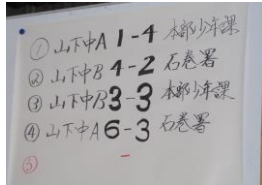 ① 山下中A 1-4 本部少年課
② 山下中B 4-2 石巻署
③ 山下中B 3-3 本部少年課
④ 山下中A 6-3 石巻署
⑤ -